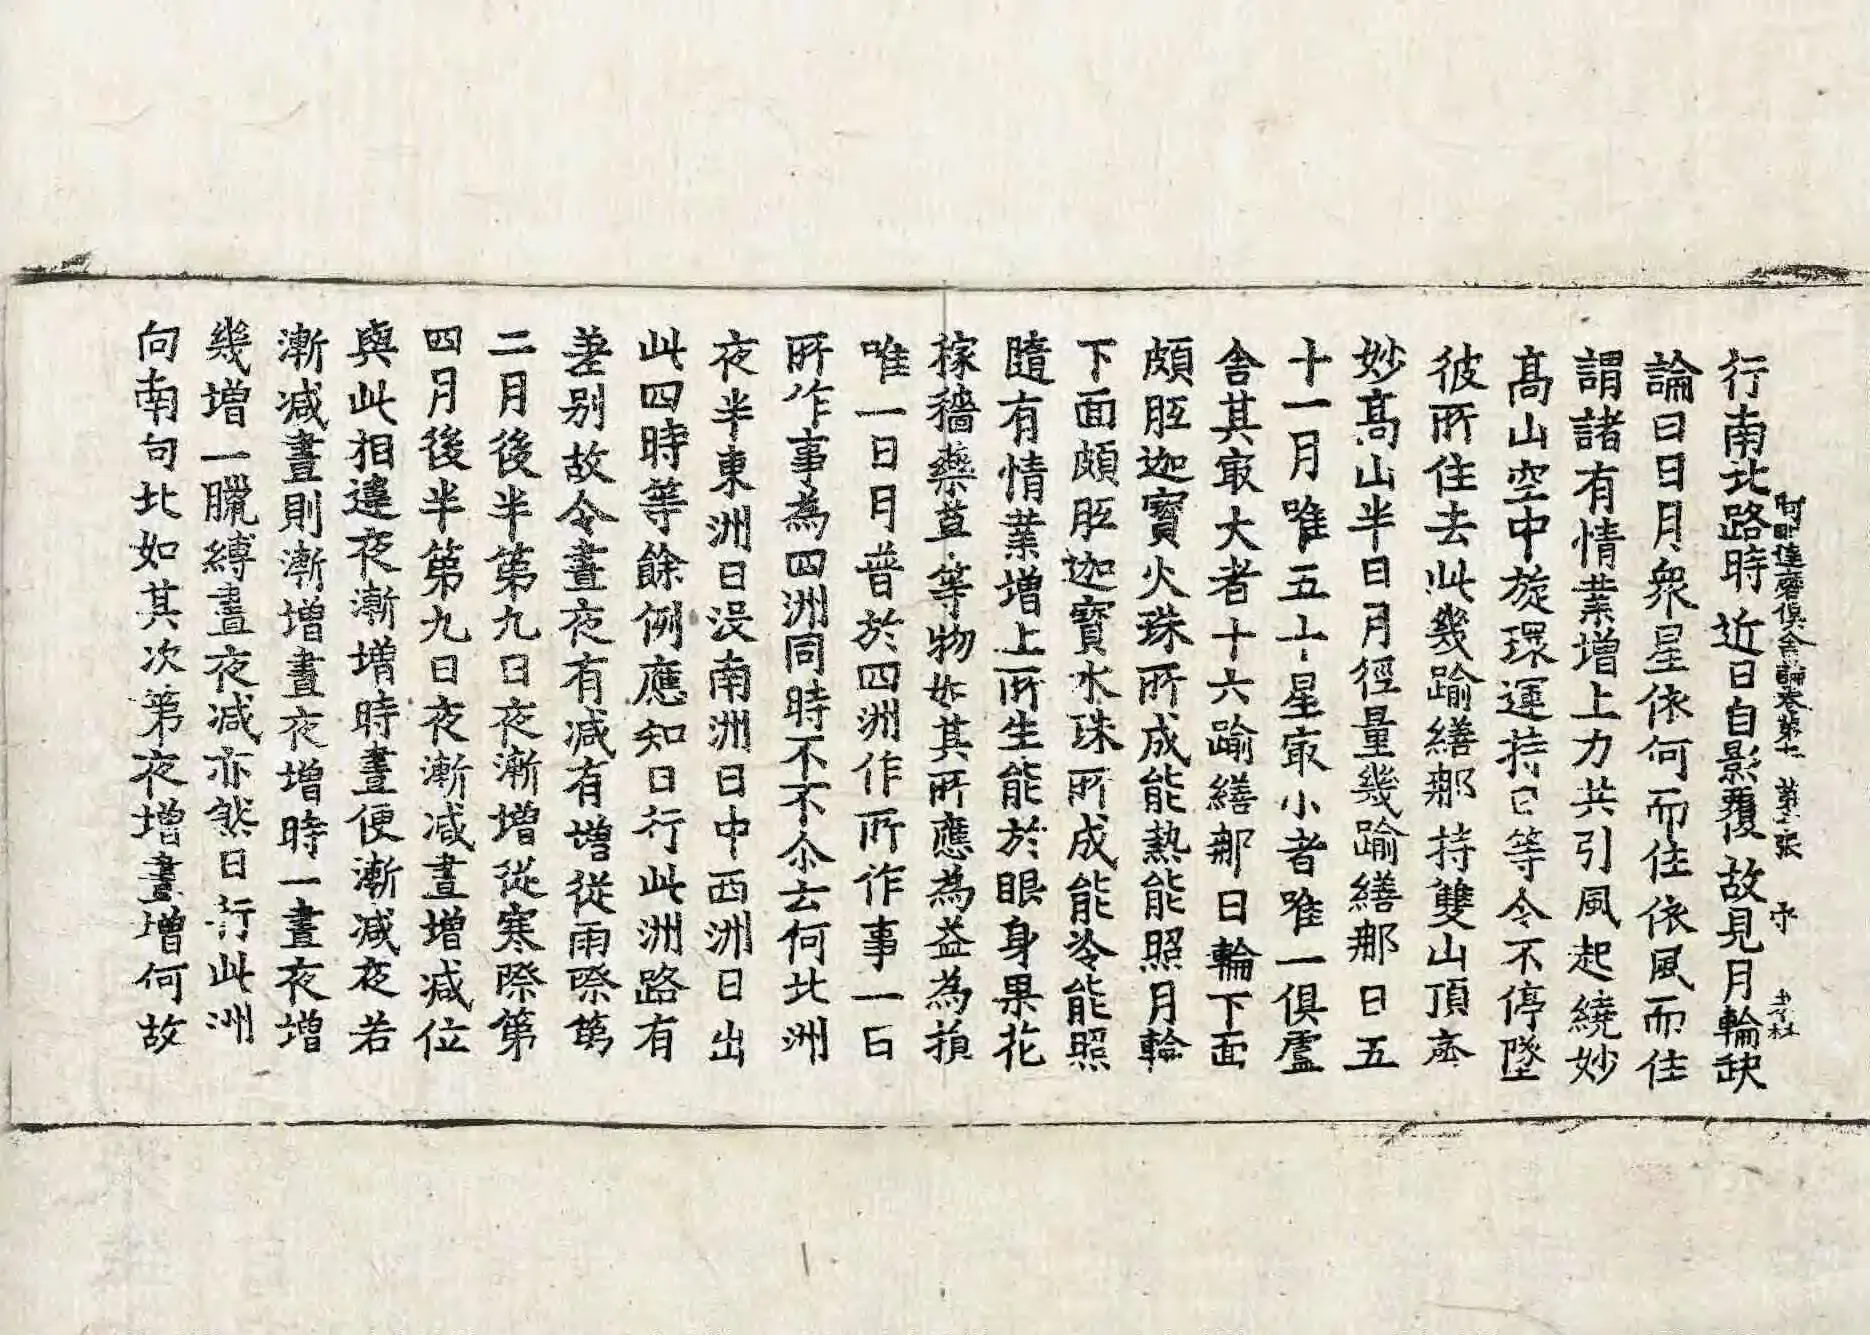 阿毗達磨俱舍論卷第十一 第三張 守 孝社
行南北路時近日自影覆故見月輪缺
論曰日月衆星依何而住依風而住
謂諸有情業增上力共引風起繞妙
高山空中旋環運持日等令不停墜
彼所住去此幾踰繕那持雙山頂齊
妙高山半日月徑量幾踰繕那日五
十一月唯五十星㝡小者唯一俱盧
舍其㝡大者十六踰繕那日輪下面
頗胝迦寶火珠所成能熱能照月輪
下面頗胝迦寶水珠所成能冷能照
隨有情業增上所生能於眼身果花
稼穡藥草等物如其所應為益為損
唯一日月普於四洲作所作事一日
所作事為四洲同時不不尒去何北洲
夜半東洲日沒南洲日中西洲日出
此四時等餘例應知日行此洲路有
差別故令晝夜有減有增從雨際第
二月後半第九日夜漸增從寒際第
四月後半第九日夜漸減晝增減位
與此相違夜漸增時晝便漸減夜若
漸減晝則漸增晝夜增時一晝夜增
幾增一臘縛晝夜減亦然日行此洲
向南向北如其次第夜增晝增何故